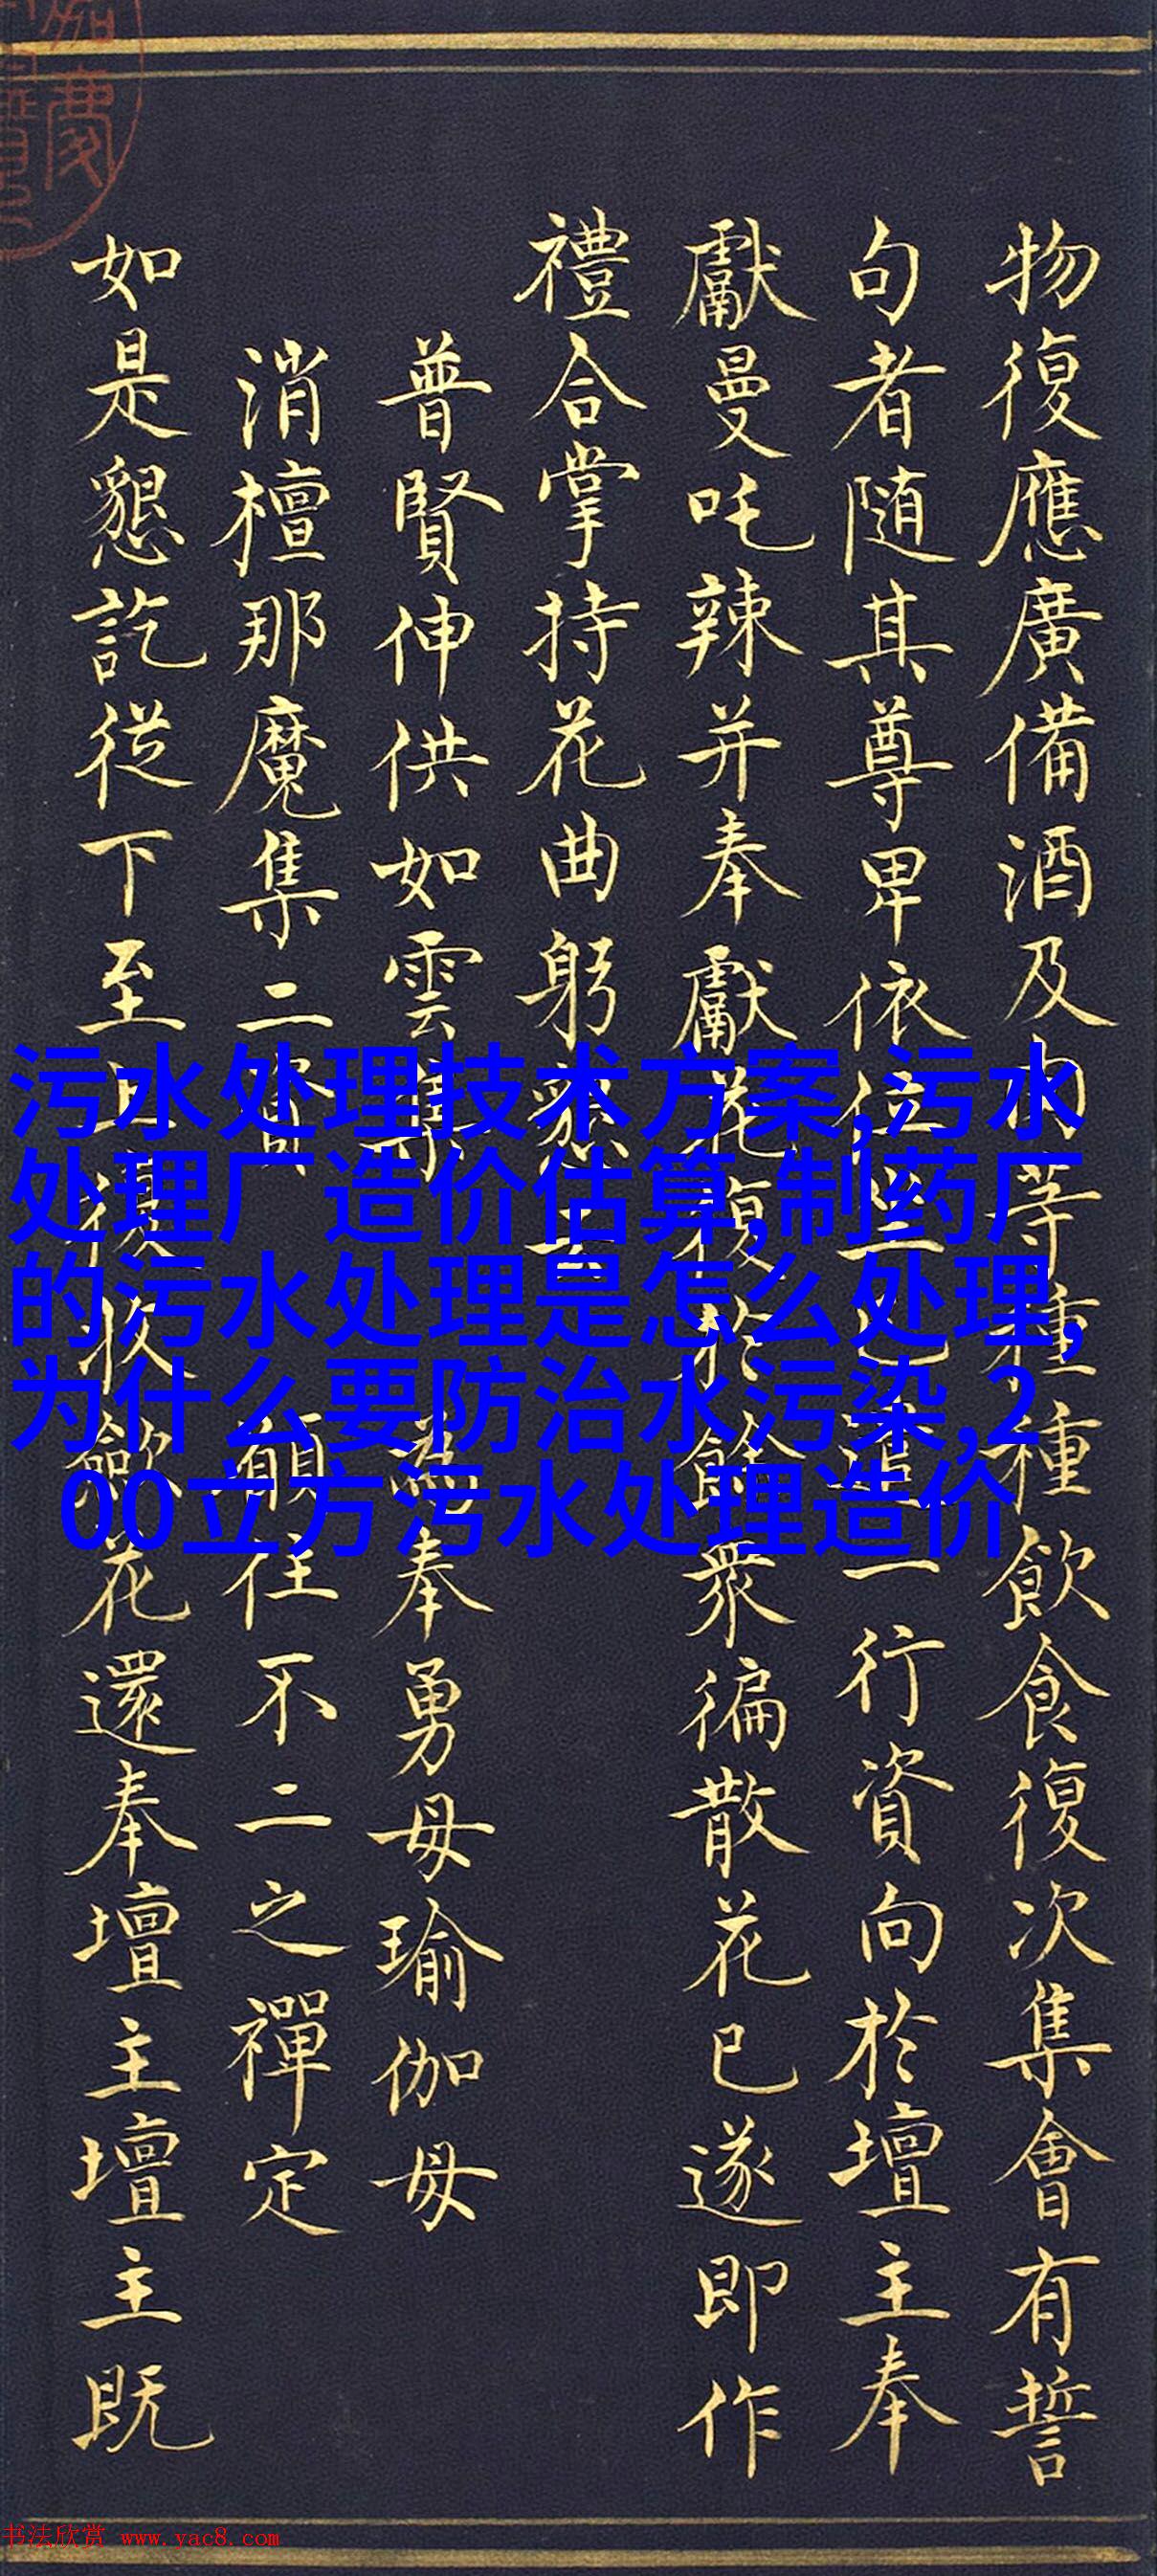 物復應廣備酒及肉等種種飲食復次集會有誓
句者随其尊卑依位坐已進一行資向於壇主奉
獻曼吒辣并奉獻花復於餘眾徧散花已遂即作
禮合掌持花曲躬懇云
普賢伸供如雲集 為奉勇母瑜伽母
消檀那魔集二資 願住不二之禪定
如是懇訖從下至上復收斂花還奉壇主壇主既
污水处理技术方案,污水
处理厂造价估算,制药厂
的污水处理是怎么处理,
为什么要防治水污染,2
00立方污水处理造价
书法欣赏 www.yac8.com